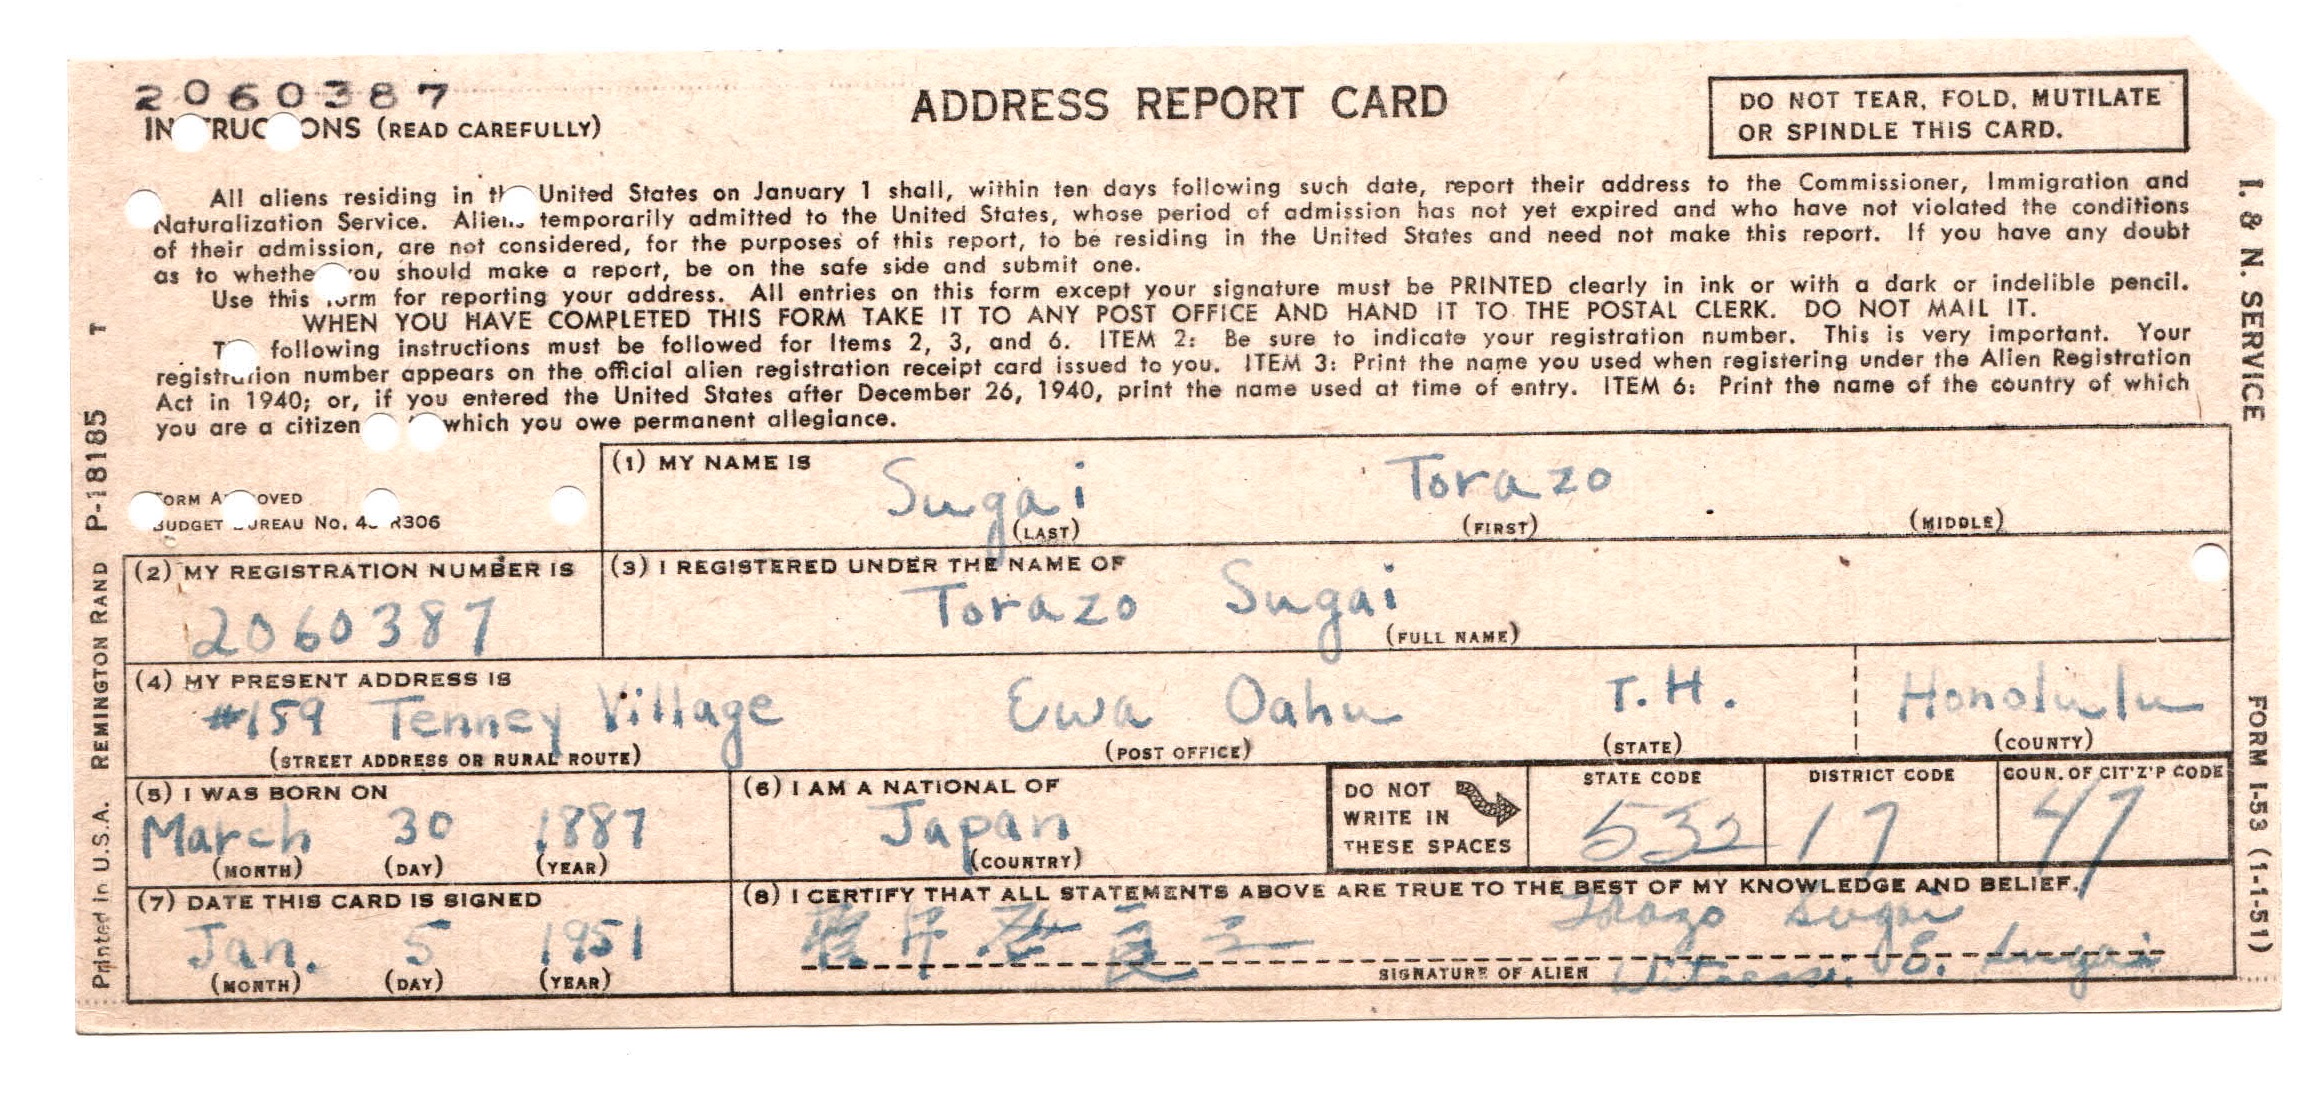 2060387
INSTRUCTIONS (READ CAREFULLY)
ADDRESS REPORT CARD
DO NOT TEAR, FOLD, MUTILATE
OR SPINDLE THIS CARD.
All aliens residing in the United States on January 1 shall, within ten days following such date, report their address to the Commissioner, Immigration and
Naturalization Service. Aliens temporarily admitted to the United States, whose period of admission has not yet expired and who have not violated the conditions
of their admission, are not considered, for the purposes of this report, to be residing in the United States and need not make this report. If you have any doubt
as to whether you should make a report, be on the safe side and submit one.
Use this form for reporting your address. All entries on this form except your signature must be PRINTED clearly in ink or with a dark or indelible pencil.
WHEN YOU HAVE COMPLETED THIS FORM TAKE IT TO ANY POST OFFICE AND HAND IT TO THE POSTAL CLERK. DO NOT MAIL IT.
The following instructions must be followed for Items 2, 3, and 6. ITEM 2: Be sure to indicate your registration number. This is very important. Your
registration number appears on the official alien registration receipt card issued to you. ITEM 3: Print the name you used when registering under the Alien Registration
Act in 1940; or, if you entered the United States after December 26, 1940, print the name used at time of entry. ITEM 6: Print the name of the country of which
you are a citizen which you owe permanent allegiance.
FORM APPROVED
BUDGET BUREAU No. R306
(1) MY NAME IS
Sugai Torazo
(LAST) (FIRST) (MIDDLE)
(2) MY REGISTRATION NUMBER IS
2060387
(3) I REGISTERED UNDER THE NAME OF
Torazo Sugai
(FULL NAME)
(4) MY PRESENT ADDRESS IS
#159 Tenney Village Ewa Oahu T.H. Honolulu
(STREET ADDRESS OR RURAL ROUTE) (POST OFFICE) (STATE) (COUNTY)
(5) I WAS BORN ON
March 30 1887
(MONTH) (DAY) (YEAR)
(6) I AM A NATIONAL OF
Japan
(COUNTRY)
DO NOT
WRITE IN
THESE SPACES
STATE CODE
532
DISTRICT CODE
17
COUN. OF CIT'Z'P CODE
47
(7) DATE THIS CARD IS SIGNED
Jan. 5 1951
(MONTH) (DAY) (YEAR)
(8) I CERTIFY THAT ALL STATEMENTS ABOVE ARE TRUE TO THE BEST OF MY KNOWLEDGE AND BELIEF.
Torazo Sugai
Witness: E. Sugai
SIGNATURE OF ALIEN
Printed in U.S.A. REMINGTON RAND P-18185 T
I. & N. SERVICE
FORM I-53 (1-1-51)